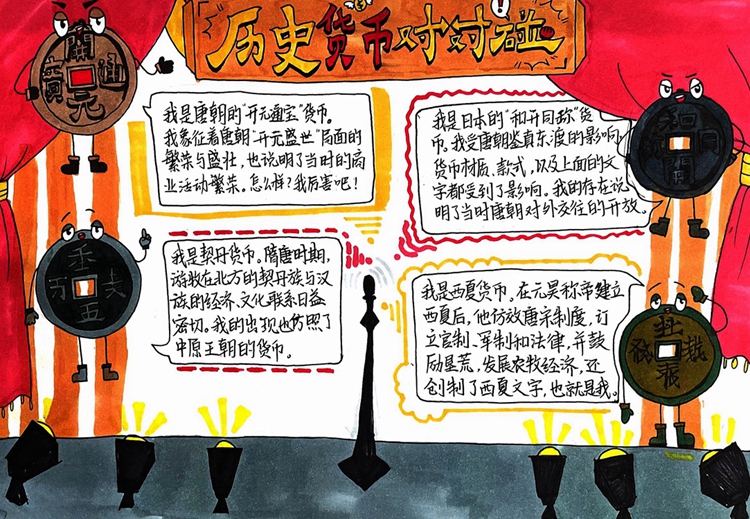 历史货币对对碰
開
元
通
寳
我是唐朝的“开元通宝”货币。
我象征着唐朝“开元盛世”局面的
繁荣与盛壮，也说明了当时的商
业活动繁荣。怎么样？我厉害吧！
我是日本的“和开同称”货
币。我受唐朝鉴真东渡的影响，
货币材质、款式，以及上面的文
字都受到了影响。我的存在说
明了当时唐朝对外交往的开放。
五
我是契丹货币。隋唐时期，
游牧在北方的契丹族与汉
族的经济、文化联系日益
密切。我的出现也仿照了
中原王朝的货币。
我是西夏货币。在元昊称帝建立
西夏后，他仿效唐宋制度，订
立官制、军制和法律，并鼓
励垦荒，发展农牧经济，还
创制了西夏文字，也就是我。